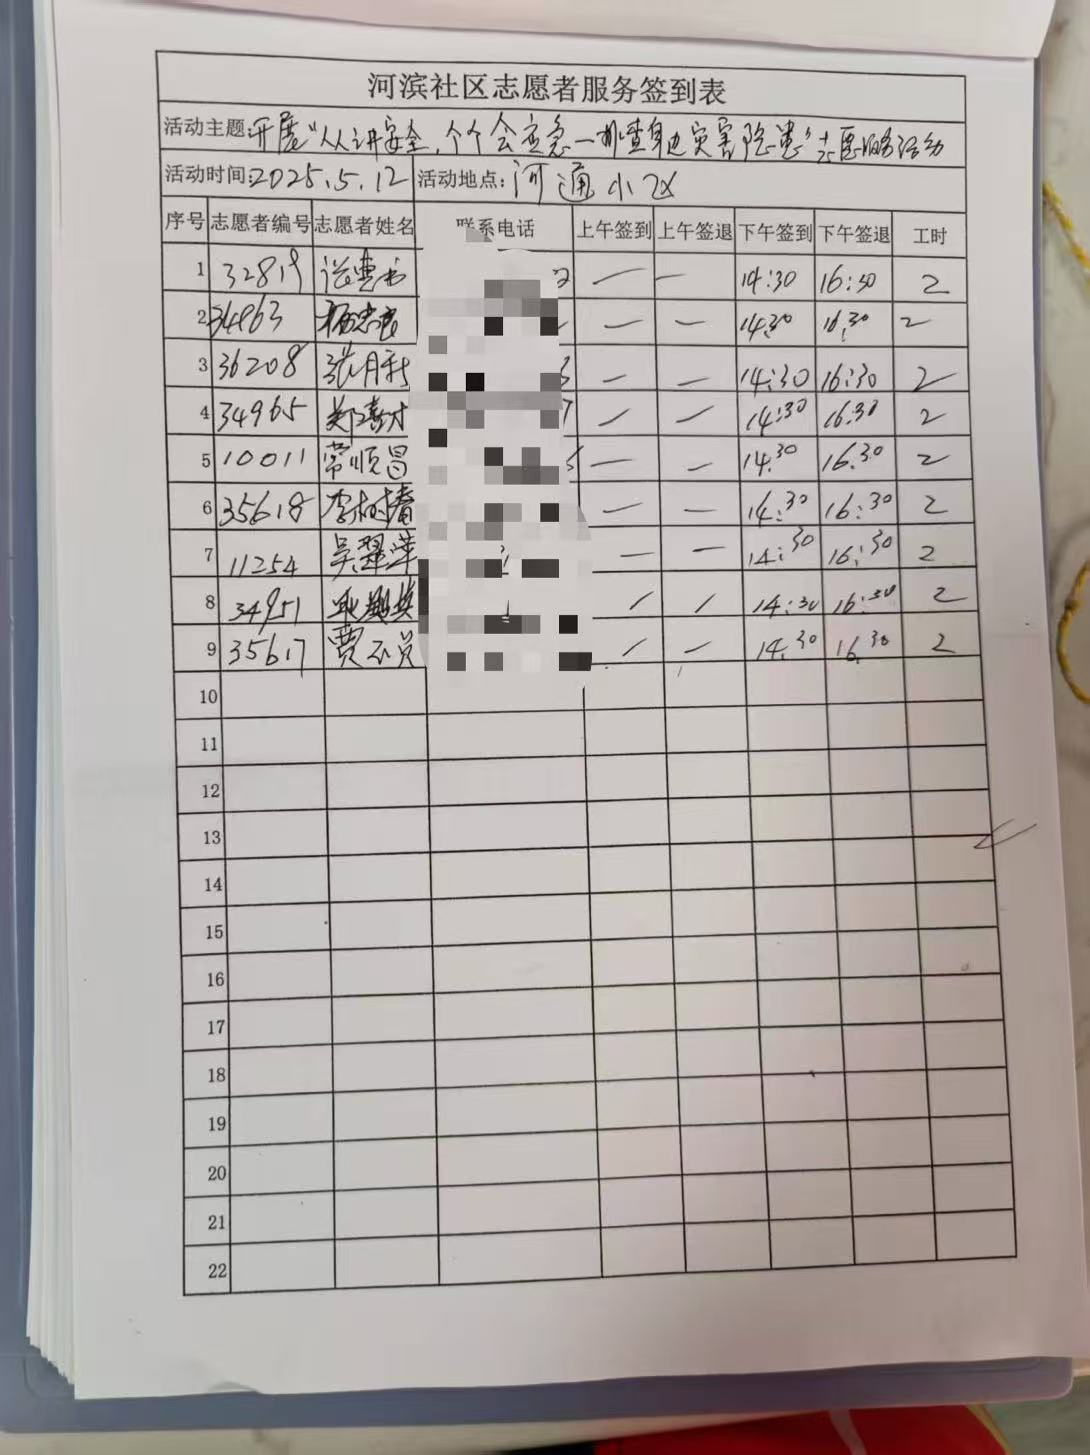 河滨社区志愿者服务签到表
活动主题:开展“人人讲安全,个个会应急—排查身边灾害隐患”志愿服务活动
活动时间:2025.5.12 活动地点:河通小区
序号 志愿者编号 志愿者姓名 联系电话 上午签到 上午签退 下午签到 下午签退 工时
1 32819 — — 14:30 16:30 2
2 34963 — — 14:30 16:30 2
3 36208 张月 — — 14:30 16:30 2
4 34965 郑 — — 14:30 16:30 2
5 10011 常顺昌 — — 14:30 16:30 2
6 35618 李树春 — — 14:30 16:30 2
7 11254 吴翠萍 — — 14:30 16:30 2
8 34951 — — 14:30 16:30 2
9 35617 贾 — — 14:30 16:30 2
10
11
12
13
14
15
16
17
18
19
20
21
22